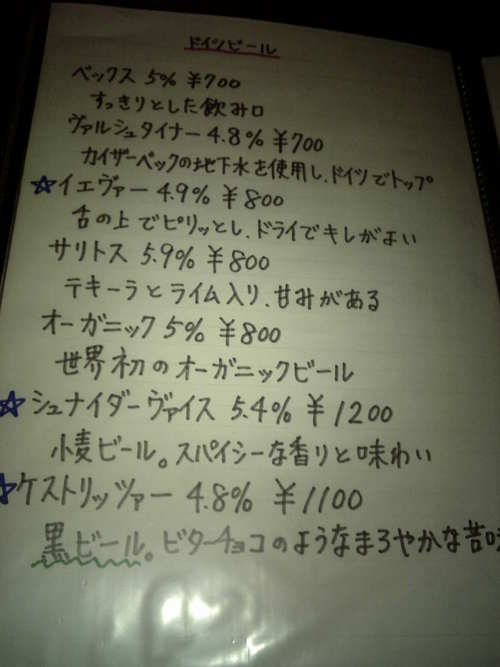 ドイツビール
ベックス 5% ¥700
すっきりとした飲み口
ヴァルシュタイナー 4.8% ¥700
カイザーベックの地下水を使用し、ドイツでトップ
☆イエヴァー 4.9% ¥800
舌の上でピリッとし、ドライでキレがよい
サリトス 5.9% ¥800
テキーラとライム入り、甘みがある
オーガニック 5% ¥800
世界初のオーガニックビール
☆シュナイダーヴァイス 5.4% ¥1200
小麦ビール。スパイシーな香りと味わい
☆ケストリッツァー 4.8% ¥1100
黒ビール。ビターチョコのようなまろやかな苦味